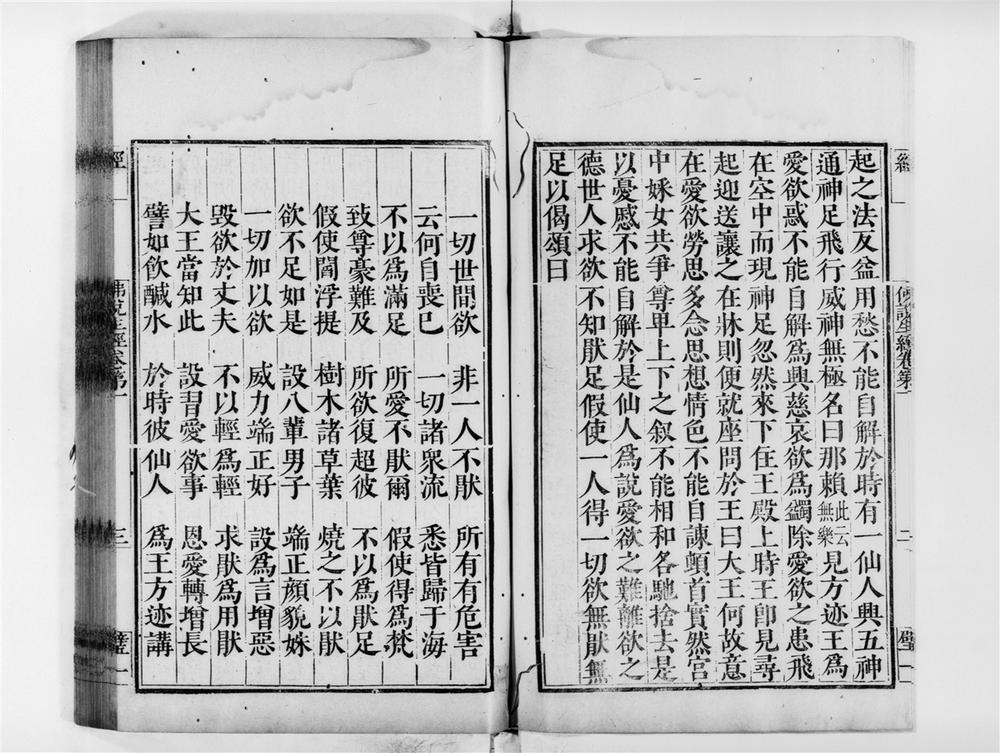 經 佛說生經卷第一 二 壁一
起之法反益用愁不能自解於時有一仙人興五神
通神足飛行威神無極名曰那賴此云無樂見方迹王爲
愛欲惑不能自解爲興慈哀欲爲蠲除愛欲之患飛
在空中而現神足忽然來下住王殿上時王卽見尋
起迎送讓之在牀則便就座問於王曰大王何故意
在愛欲勞思多念思想情色不能自諫頓首實然宮
中婇女共爭尊卑上下之叙不能相和各馳捨去是
以憂慼不能自解於是仙人爲說愛欲之難離欲之
德世人求欲不知猒足假使一人得一切欲無猒無
足以偈頌曰
一切世間欲 非一人不猒 所有有危害
云何自喪已 一切諸衆流 悉皆歸于海
不以爲滿足 所愛不猒爾 假使得爲梵
致尊豪難及 所欲復超彼 不以爲猒足
假使閻浮提 樹木諸草葉 燒之不以猒
欲不足如是 設八輩男子 端正顏貌姝
一切加以欲 威力端正好 設爲言增惡
毀欲於丈夫 不以輕爲輕 求猒爲用猒
大王當知此 設習愛欲事 恩愛轉增長
譬如飮鹹水 於時彼仙人 爲王方迹講
經 佛說生經卷第一 三 壁一